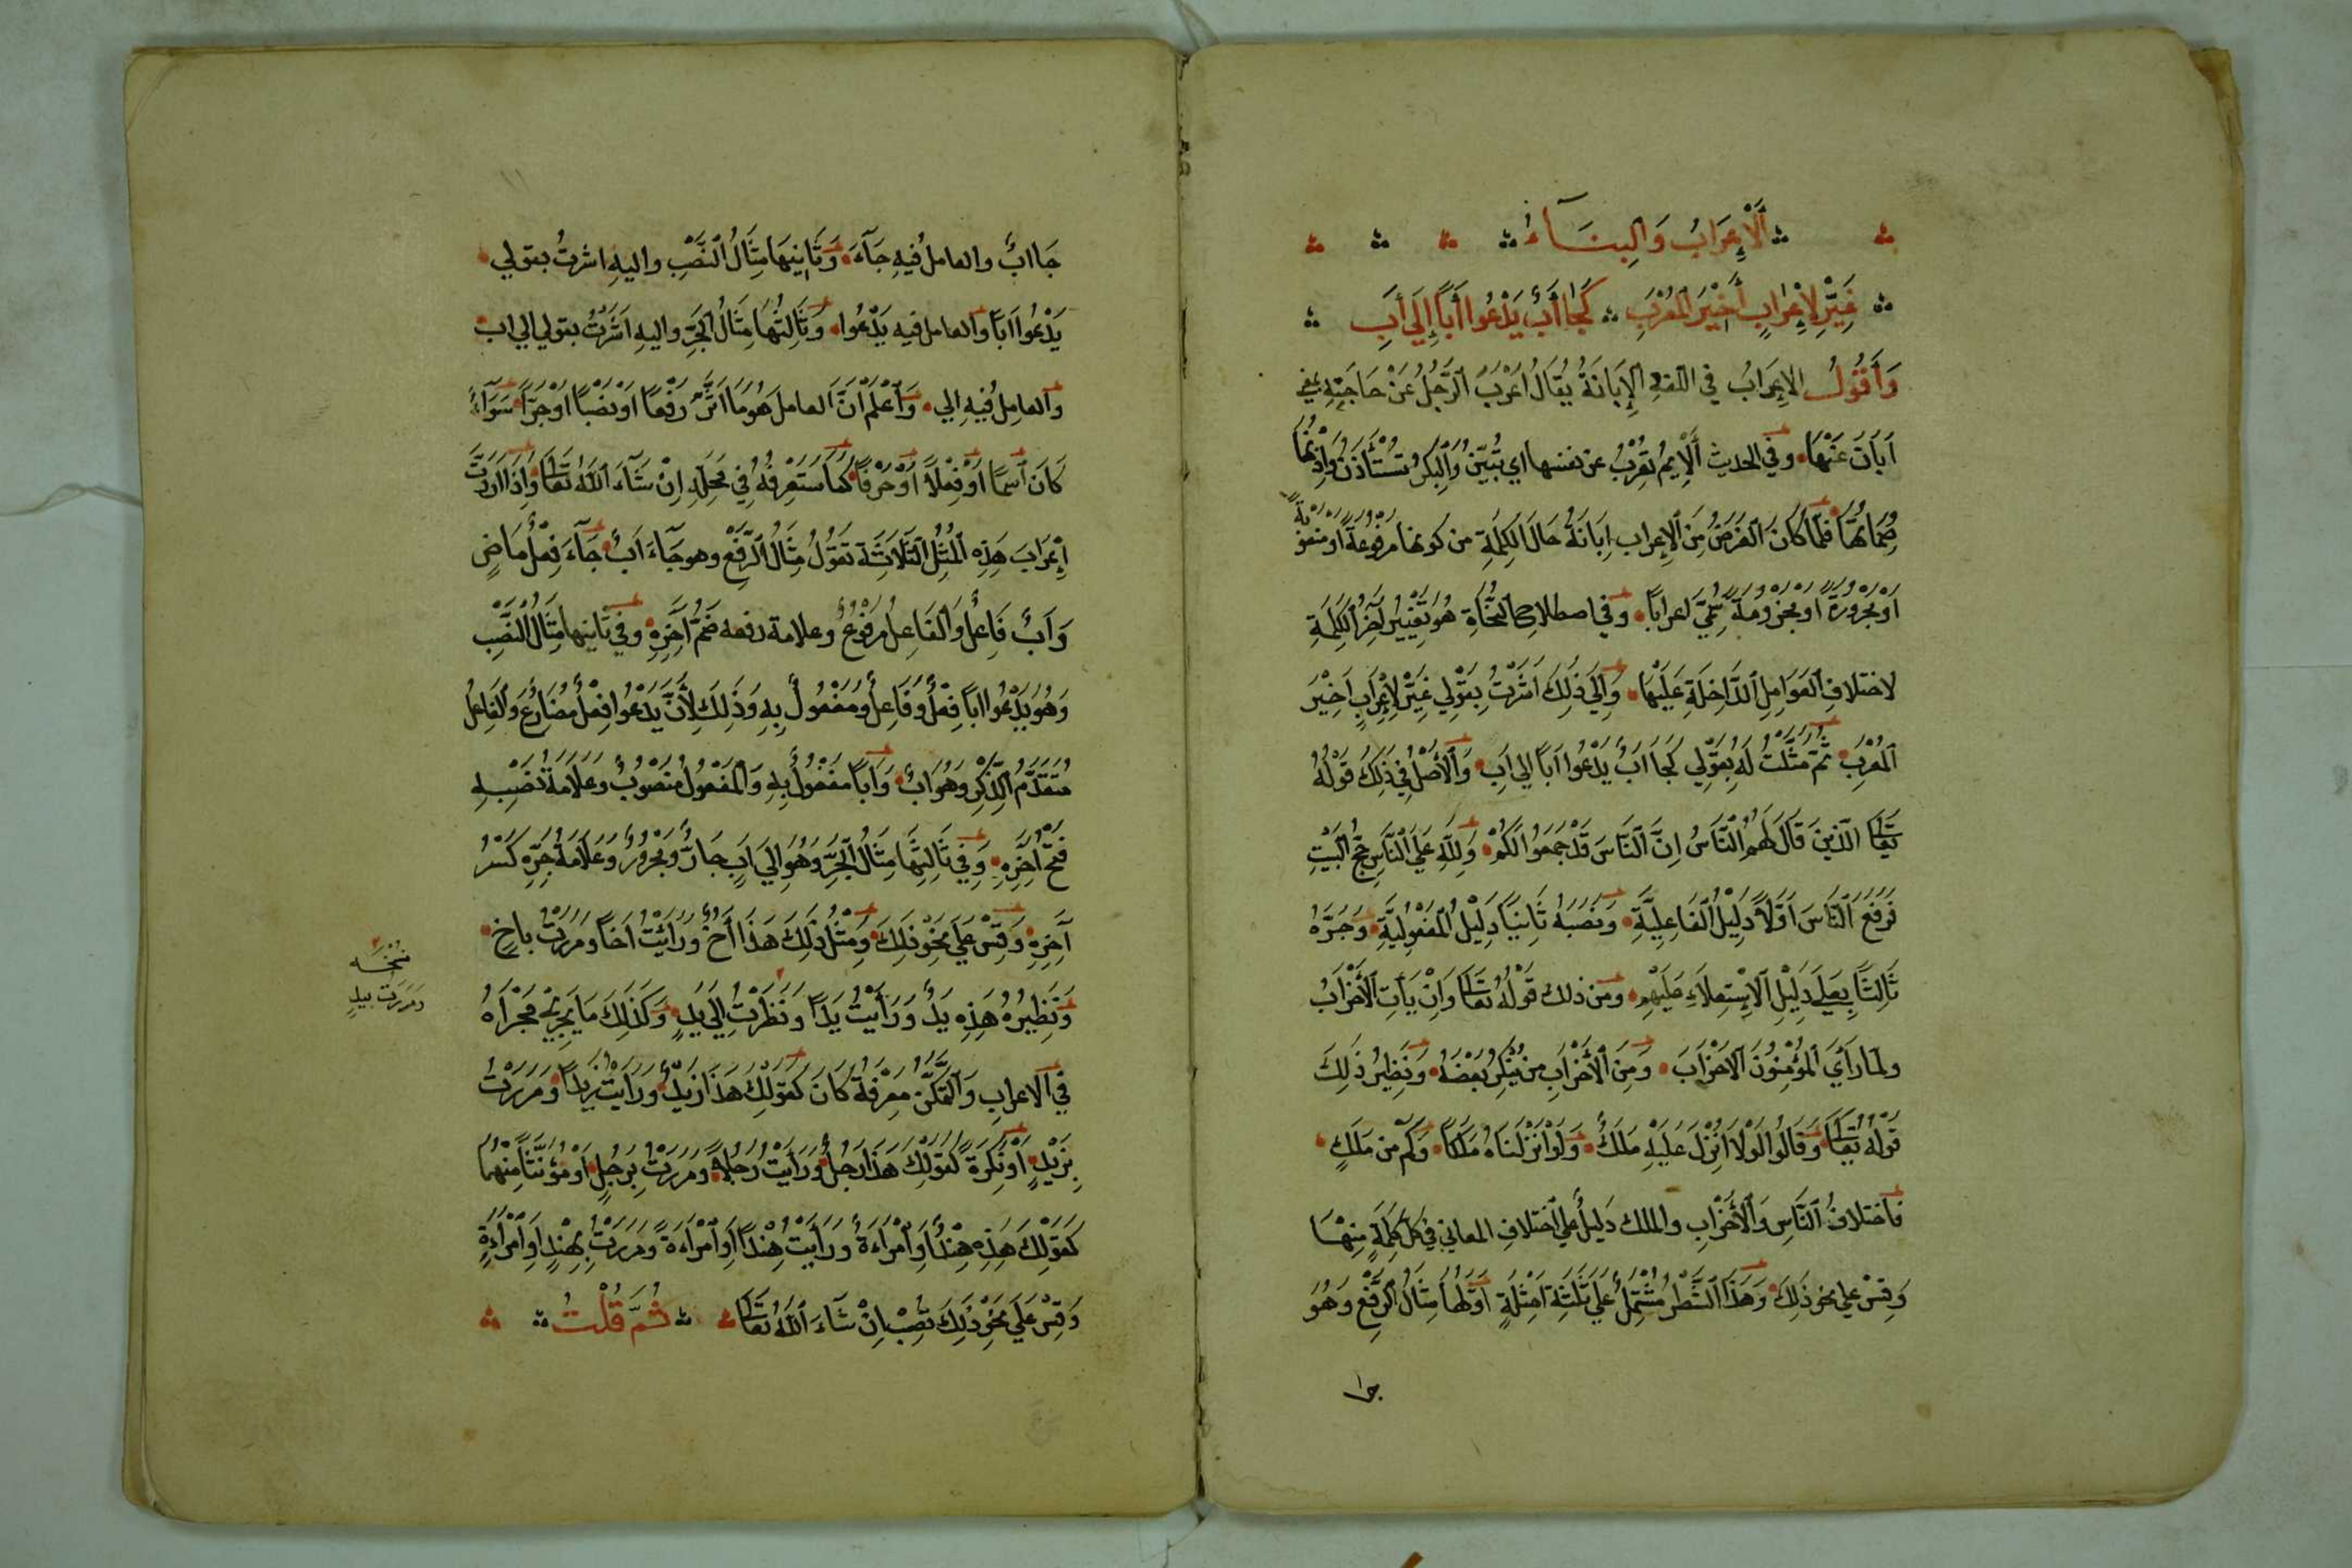 اَلْإِعْرَابُ وَالبِنَاءُ
غَيِّرْ لِإِعْرَابٍ أَخِيْرَ المُعْرَبِ كَجَا أَبٌ يَدْعُوا أَبًا إِلَى أَبِ
وَأَقُولُ الاِعرَابُ في اللغةِ الإِبَانَةُ يُقَالُ اَعْرَبَ الرَّجُلُ عَنْ حَاجَتِهِ يعني
اَبَانَ عَنْهَا وفي الحديث اَلْأيِّمُ تُعْرِبُ عن نفسها اي تُبَيِّنُ وَالْبِكْرُ تُسْتَأذَنُ وَإِذْنُهَا
صُمَاتُهَا فَلَمَّا كَانَ الغَرَضُ مِنَ الإِعراب اِبَانَةَ حَالَ الكَلِمَةِ من كونها مرفوعةً او منصوبةً
اَوْ مَجْرُورَةً اَوْ مَجْزُومَةً سُمِّيَ اِعرابًا وفي اصطلاح النُّحَاةِ هُوَ تَغْيِيْرُ آخِرِ الْكَلِمَةِ
لاختلافِ العَوَامِلِ الدَّاخِلَةِ عَلَيْهَا وَاِلَى ذَلِكَ اَشَرْتُ بِقَوْلِي غَيِّرْ لِإِعْرَابٍ اَخِيْرَ
المُعْرَبِ ثُمَّ مَثَّلْتُ لَهُ بِقَوْلِي كَجَا اَبٌ يَدْعُوا اَبًا الى اَبِ وَالْأَصْلُ فِي ذَلِكَ قَوْلُهُ
تَعَالَى الَّذِينَ قَالَ لَهُمُ النَّاسُ اِنَّ النَّاسَ قَدْ جَمَعُوا لَكُمْ وَلِلَّهِ عَلَى النَّاسِ حَجُّ الْبَيْتِ
فَرَفَعَ النَّاسَ اَوَّلاً دَلِيْلُ الفَاعِلِيَّةِ وَنَصَبَهُ ثَانِيًا دَلِيْلُ المَفْعُولِيَّةِ وَجَرَّهُ
ثَالِثًا بِعَلَى دَلِيْلِ الاِسْتِعلَاءِ عَلَيْهِمْ ومن ذلك قَوْلُهُ تَعَالَى وَاِنْ يَأتِ الأَحْزَابُ
ولما رَأَى المُؤْمِنُونَ الاَحْزَابَ وَمِنَ الأَحْزَابِ من يُنْكِرُ بَعْضَهُ وَنَظِيرُ ذَلِكَ
قَوْلُهُ تَعَالَى وَقَالُوا لَوْلَا اُنْزِلَ عَلَيْهِ مَلَكٌ وَلَوْ اَنْزَلْنَاهُ مَلَكًا وَكَمْ من مَلَكٍ
فاختلافُ النَّاسِ وَالأَحْزَابِ والملك دَلِيلٌ على اختلافِ المعاني فِي كُلِّ كَلِمَةٍ مِنْهَا
وَقِسْ على نحو ذَلِكَ وَهَذَا الشَّطْرُ مُشْتَمِلٌ عَلَى ثَلَثَةِ اَمْثِلَةٍ اَوَّلُهَا مِثَالُ الرَّفْعِ وَهُوَ
جا
جَا ابٌ والعاملُ فيهِ جَآءَ وَثَانِيهَا مِثَالُ النَّصْبِ واليهِ اشرتُ بقولي
يَدْعُوا اَبًا والعامل فيه يَدْعُوا وَثَالِثُهَا مِثَالُ الجَرِّ واليهِ اَشَرْتُ بقولي الى اب
والعامِلُ فِيهِ الى وَاَعْلَمْ اَنَّ العامل هُوَ مَا اَثَّرَ رَفْعًا اَوْ نَصْبًا اَوْ جَرًّا سَوَآءٌ
كَانَ اسمًا اَوْ فِعْلاً اَوْ حَرْفًا كَمَا سَتَعْرِفُهُ فِي مَحِلِّهِ اِنْ شَآءَ اللَّهُ تَعَالَى وَاِذَا اَرَدْتَ
اِعْرَابَ هَذِهِ المُثُلِ الثَّلَاثَةِ تَقُولُ مِثَالُ الرَّفْعِ وهو جَآءَ اَبٌ جَآءَ فِعْلٌ مَاضٍ
وَاَبٌ فَاعِلٌ وَالفَاعِلُ مَرْفُوعٌ وعلامة رفعه ضَمُّ اَخِرِهِ وفي ثانيها مِثَالُ النَّصْبِ
وَهُوَ يَدْعُوا ابًا فِعْلٌ وَفَاعِلٌ وَمَفْعُولٌ بِهِ وَذَلِكَ لِأَنَّ يَدْعُوا فِعْلٌ مُضَارِعٌ وَالْفَاعِلُ
مُتَقَدِّمُ الذِّكْرِ وَهُوَ اَبٌ وَاَبًا مَفْعُولٌ بِهِ وَالْمَفْعُولُ مَنْصُوبٌ وَعَلَامَةُ نَصْبِهِ
فَتْحُ اَخِرِهِ وَفِي ثَالِثِهَا مِثَالُ الْجَرِّ وَهُوَ اِلَى اَبٍ جَارٌّ وَمَجْرُورٌ وَعَلَامَةُ جَرِّهِ كَسْرُ
آخِرِهِ وَقِسْ عَلَى نَحْوِ ذَلِكَ وَمِثْلُ ذَلِكَ هَذَا أَخٌ وَرَأيْتُ اَخًا وَمَرَرْتُ باخٍ
وَنَظِيرُهُ هَذِهِ يَدٌ وَرَاَيْتُ يَدًا وَنَظَرْتُ اِلَى يَدٍ وَكَذَلِكَ مَا يَجْرِيْ مَجْرَاهُ
نسخه
ومررت بيدٍ
فِي الاعرابِ وَالتَّمَكُّنِ مَعْرِفَةً كَانَ كَقَوْلِكَ هَذَا زَيْدٌ وَرَاَيْتُ زَيْدًا وَمَرَرْتُ
بِزَيْدٍ اَوْ نَكِرَةً كَقَوْلِكَ هَذَا رَجُلٌ وَرَاَيْتُ رَجُلاً وَمَرَرْتُ بِرَجُلٍ اَوْ مُؤَنَّثًا مِنْهُمَا
كَقَوْلِكَ هَذِهِ هِنْدٌ اَوِ امْرَاَءَةٌ وَرَأَيْتُ هِنْدًا اَوِ امْرَاَءَةً وَمَرَرْتُ بِهِنْدٍ اَوِ امْرَاَءَةٍ
وَقِسْ عَلَى نَحْوِ ذَلِكَ تُصِبْ اِنْ شَآءَ اللَّهُ تَعَالَى ثُمَّ قُلْتُ